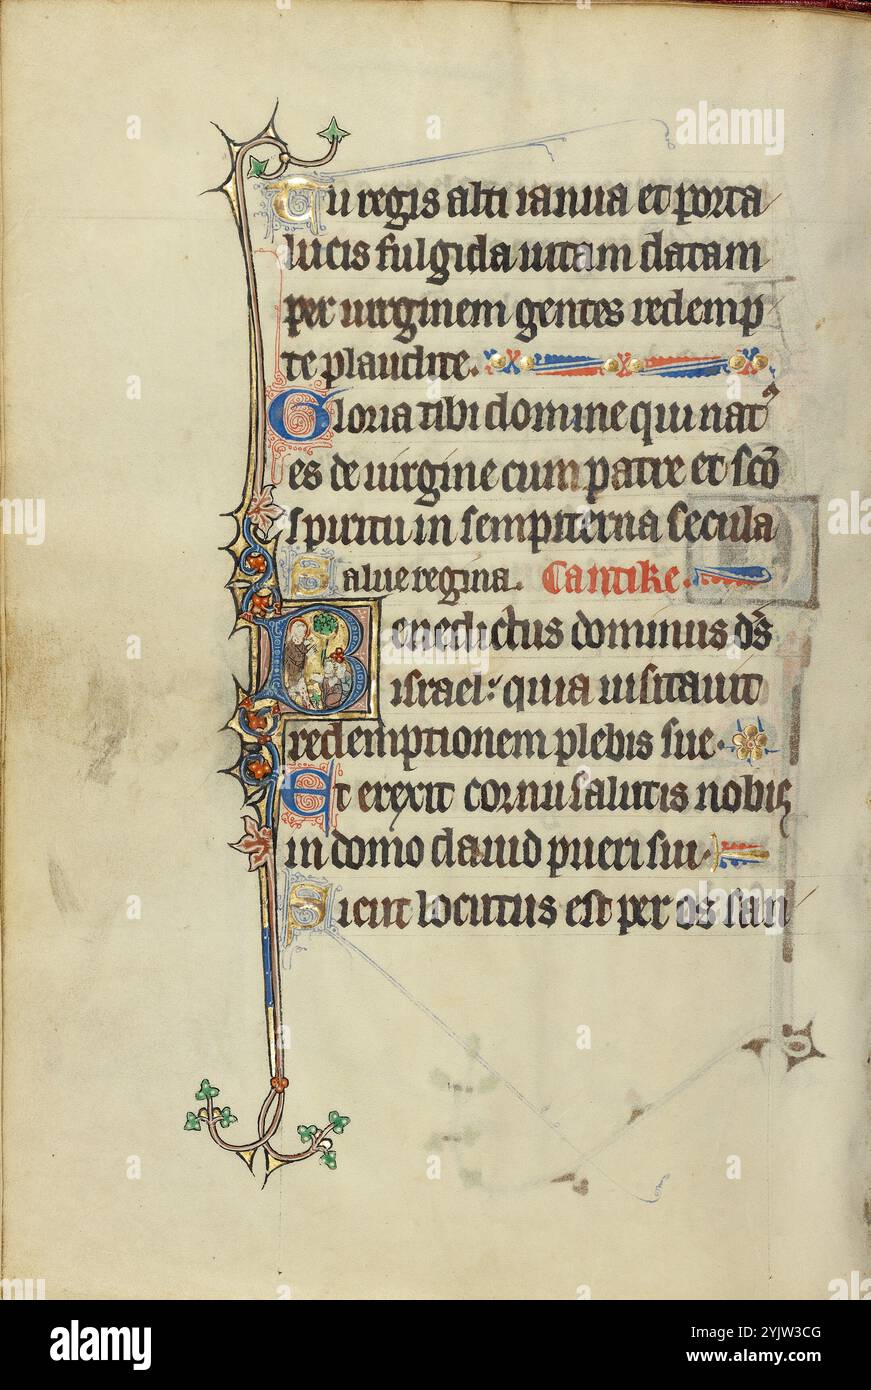 Tu regis alti ianua et porta
lucis fulgida uitam datam
per uirginem gentes redemp
te plaudite.
Gloria tibi domine qui natꝰ
es de uirgine cum patre et sc̄o
spiritu in sempiterna secula
Salue regina. Cantike.
Benedictus dominus ds̄
israel: quia uisitauit
redemptionem plebis sue.
Et erexit cornu salutis nobis
in domo dauid pueri sui.
Sicut locutus est per os san
a alamy
alamy
Image ID: 2YJW3CG
www.alamy.com